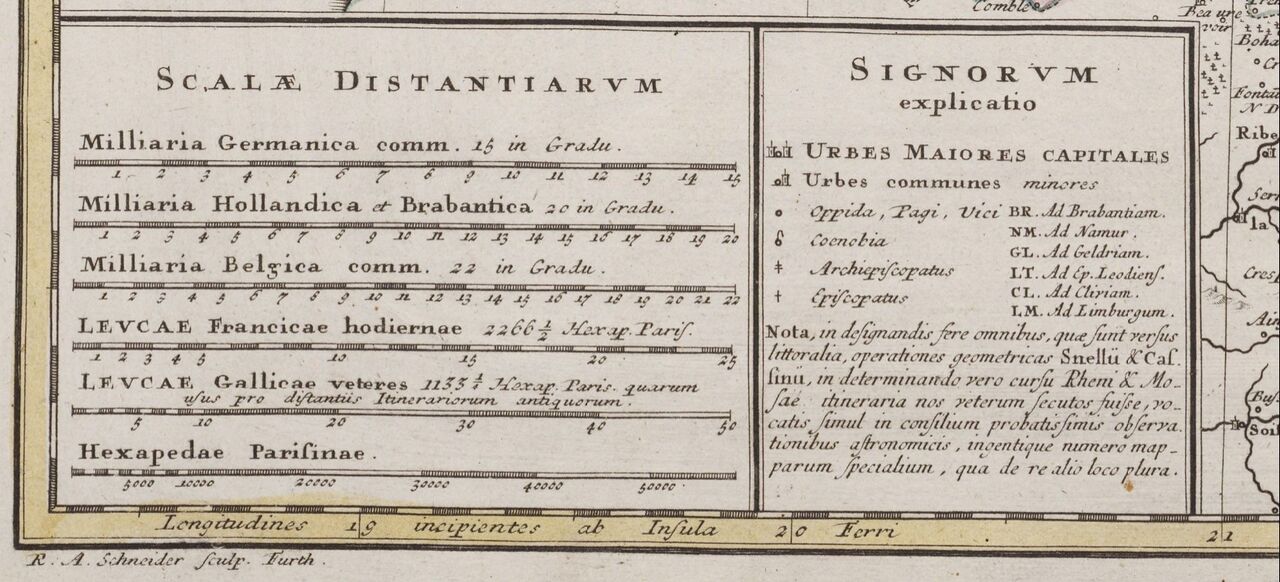 Comble
Beauvoir
Boha
Fonta
N D
Ribe
Serr
la
Cres
Aix
Bus
Sois
SCALÆ DISTANTIARVM
Milliaria Germanica comm. 15 in Gradu.
1 2 3 4 5 6 7 8 9 10 11 12 13 14 15
Milliaria Hollandica et Brabantica 20 in Gradu.
1 2 3 4 5 6 7 8 9 10 11 12 13 14 15 16 17 18 19 20
Milliaria Belgica comm. 22 in Gradu.
1 2 3 4 5 6 7 8 9 10 11 12 13 14 15 16 17 18 19 20 21 22
LEVCAE Francicae hodiernae 2266 1/2 Hexap. Pariſ.
1 2 3 4 5 10 15 20 25
LEVCAE Gallicae veteres 1133 Hexap. Paris. quarum
usus pro diſtantiis Itinerariorum antiquorum.
5 10 20 30 40 50
Hexapedae Pariſinae.
5000 10000 20000 30000 40000 50000
SIGNORVM
explicatio
URBES MAIORES CAPITALES
Urbes communes minores
Oppida, Pagi, Vici BR. Ad Brabantiam.
Coenobia NM. Ad Namur.
GL. Ad Geldriam.
Archiepiscopatus LT. Ad Ep. Leodienſ.
Epiſcopatus CL. Ad Cliviam.
LM. Ad Limburgum.
Nota, in deſignandis fere omnibus, quæ ſunt verſus
littoralia, operationes geometricas Snellii & Caſ-
ſinii, in determinando vero curſu Rheni & Mo-
ſae itineraria nos veterum ſecutos fuiſſe, vo-
catis ſimul in conſilium probatiſſimis obſerva.
tionibus aſtronomicis, ingentique numero map-
parum ſpecialium, qua de re alio loco plura.
Longitudines 19 incipientes ab Inſula 20 Ferri 21
R. A. Schneider ſculp. Furth.